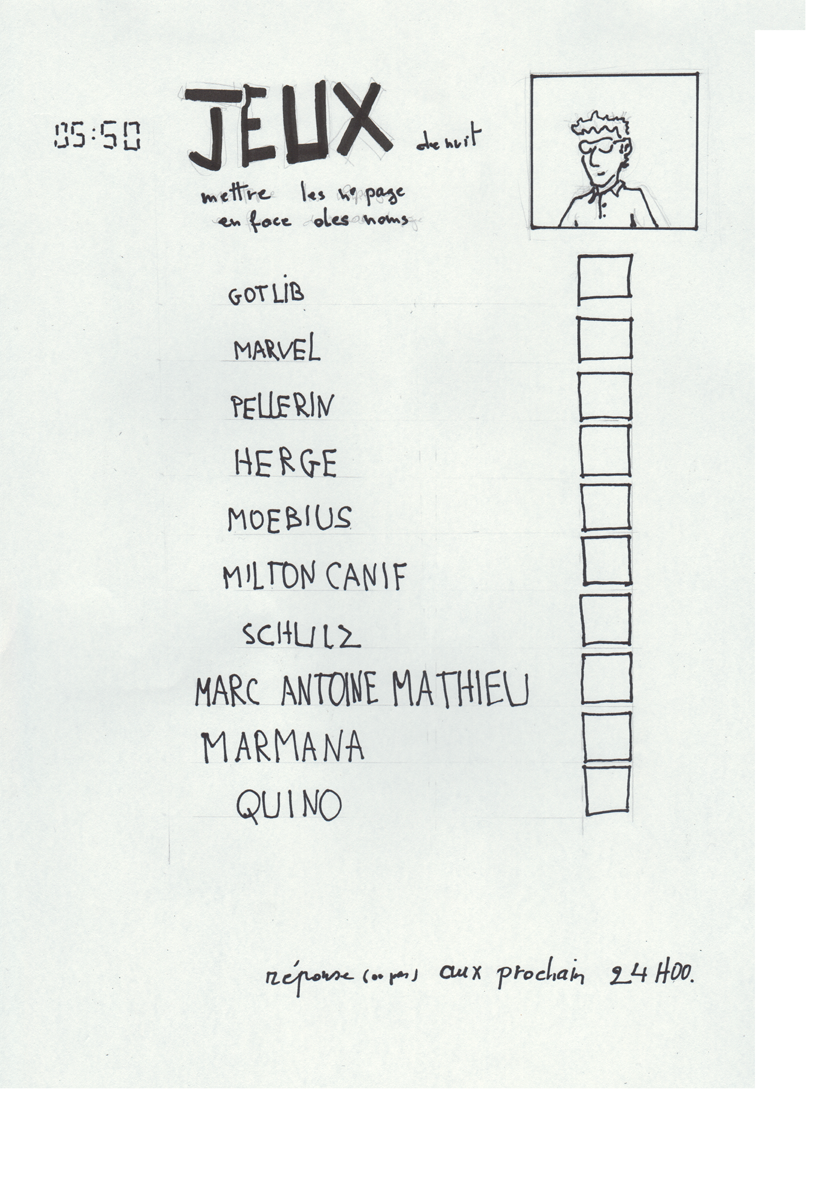 05:50
JEUX de nuit
mettre les n° page
en face des noms
GOTLIB
MARVEL
PELLERIN
HERGE
MOEBIUS
MILTON CANIF
SCHULZ
MARC ANTOINE MATHIEU
MARMANA
QUINO
réponse (ou pas) aux prochain 24H00.